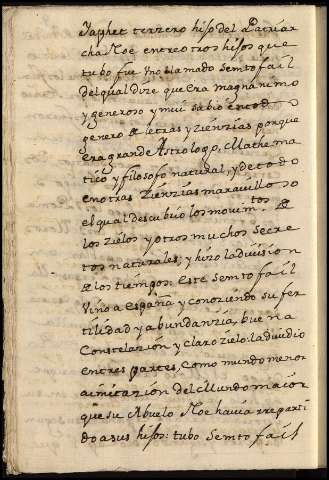 Japhet terzero hijo del Patriar
cha Noe entre otros hijos que
tubo fue Vno llamado Semtofail
del qual dize que era magnanimo
y generoso y mui sabio en todo
genero de letras y zienzias porque
era grande Astrologo, Mathema
tico y filosofo natural, y de todo
en otras zienzias maravilloso
el qual descubrio los movimtos de
los zielos y otros muchos secre
tos naturales; y hizo la diuision
de los tiempos: este Semtofail
Vino a España y conoziendo su fer
tilidad y abundanzia, buena
Constelazion y claro zielo: la diuidio
en tres partes, Como mundo menor
a imitazion del Mundo maior
que su Abuelo Noe hauia rreparti
do a sus hijos: tubo Semtofail